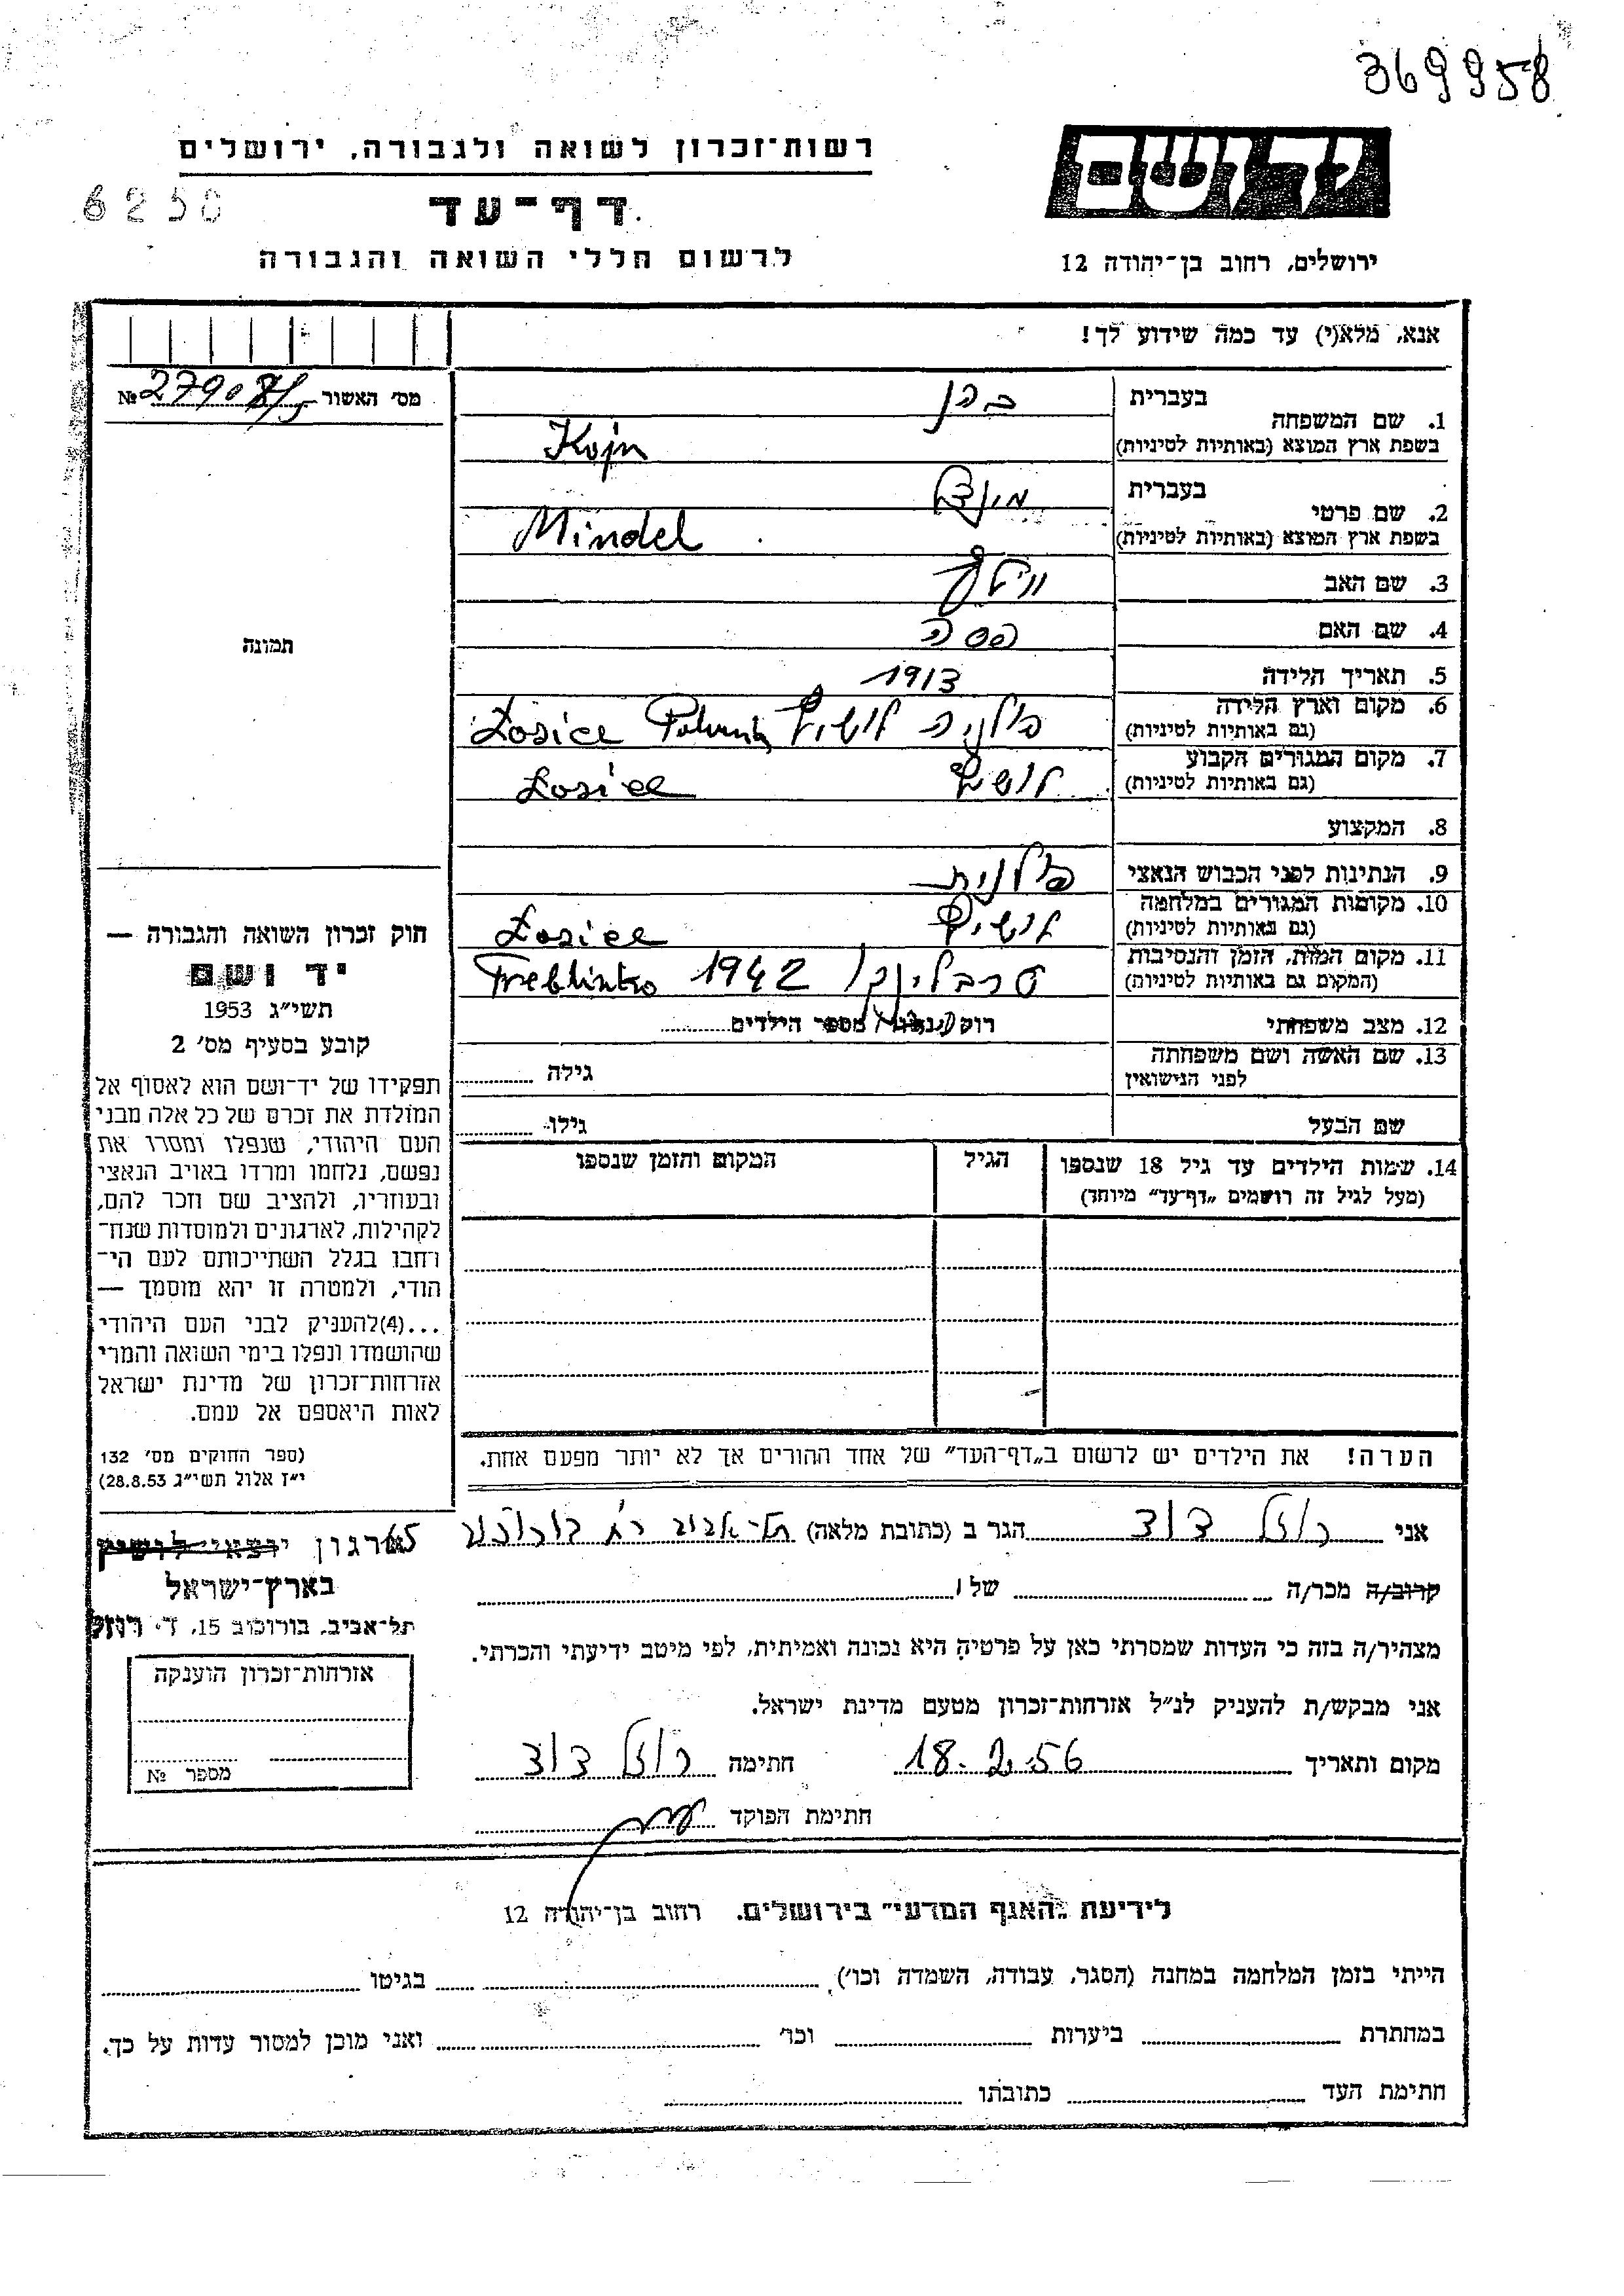 369958
יד ושם
רשות־זכרון לשואה ולגבורה, ירושלים
6250
דף־עד
ירושלים, רחוב בן־יהודה 12
לרשום חללי השואה והגבורה
אנא, מלא(י) עד כמה שידוע לך!
מס׳ האשור № 27908/5
1. שם המשפחה
בעברית כהן
בשפת ארץ המוצא (באותיות לטיניות) Kojn
2. שם פרטי
בעברית מינדל
בשפת ארץ המוצא (באותיות לטיניות) Mindel
3. שם האב
4. שם האם פסה
תמונה
5. תאריך הלידה 1913
6. מקום וארץ הלידה
(גם באותיות לטיניות) פולניה לושיץ Łosice
7. מקום המגורים הקבוע
(גם באותיות לטיניות) לושיץ Łosice
8. המקצוע
9. הנתינות לפני הכבוש הנאצי פולנית
10. מקומות המגורים במלחמה
(גם באותיות לטיניות) לושיץ Łosice
11. מקום המות, הזמן והנסיבות
(המקום גם באותיות לטיניות) טרבלינקי 1942 Treblinka
12. מצב משפחתי מספר הילדים
13. שם האשה ושם משפחתה
לפני הנישואין גילה
שם הבעל גילו
14. שמות הילדים עד גיל 18 שנספו
(מעל לגיל זה רושמים „דף־עד״ מיוחד)
הגיל
המקום והזמן שנספו
הערה! את הילדים יש לרשום ב„דף־העד״ של אחד ההורים אך לא יותר מפעם אחת.
חוק זכרון השואה והגבורה —
יד ושם
תשי״ג 1953
קובע בסעיף מס׳ 2
תפקידו של יד־ושם הוא לאסוף אל
המולדת את זכרם של כל אלה מבני
העם היהודי, שנפלו ומסרו את
נפשם, נלחמו ומרדו באויב הנאצי
ובעוזריו, ולהציב שם וזכר להם,
לקהילות, לארגונים ולמוסדות שנח־
רחבו בגלל השתייכותם לעם הי־
הודי, ולמטרה זו יהא מוסמך —
...(4) להעניק לבני העם היהודי
שהושמדו ונפלו בימי השואה והמרי
אזרחות־זכרון של מדינת ישראל
לאות היאספם אל עמם.
(ספר החוקים מס׳ 132
י״ז אלול תשי״ג 28.8.53)
אני רוזל דוד הגר ב (כתובת מלאה) תל־אביב רח בורוכוב 65
ארגון יוצאי לושיץ
בארץ־ישראל
תל־אביב, בורוכוב 15, ד. רוזל
קרוב/ה מכר/ה של
מצהיר/ה בזה כי העדות שמסרתי כאן על פרטיה היא נכונה ואמיתית, לפי מיטב ידיעתי והכרתי.
אני מבקש/ת להעניק לנ״ל אזרחות־זכרון מטעם מדינת ישראל.
מקום ותאריך 18.2.56 חתימה רוזל דוד
חתימת הפוקד
אזרחות־זכרון הוענקה
מספר №
לידיעת „האגף המדעי״ בירושלים. רחוב בן־יהודה 12
הייתי בזמן המלחמה במחנה (הסגר, עבודה, השמדה וכו׳) בגיטו
במחתרת ביערות וכו׳ ואני מוכן למסור עדות על כך.
חתימת העד כתובתו